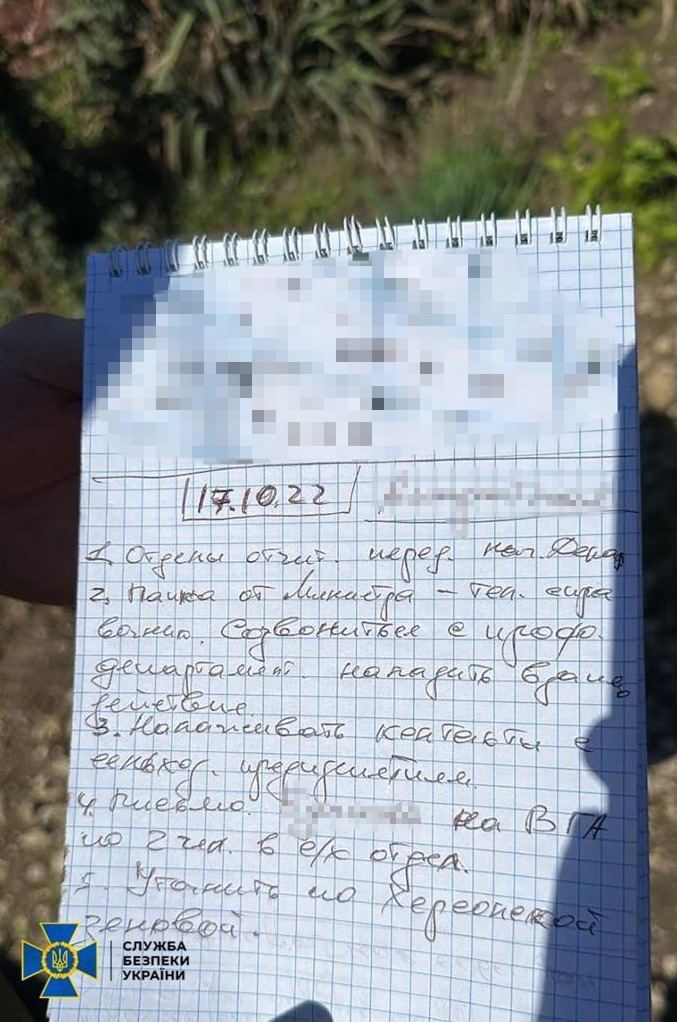 17.10.22
1. Отделы отчит. перед. нач. Депар
2. Папка от Министра – тел. спра
вочник. Созвониться с проф.
департамент. наладить взаимо
действие.
3. Налаживать контакты с
сельхоз. предприятием.
4. Письмо. на ВГА
по 2 чел. в с/х отдел.
5. Уточнить по Херсонской
зерновой.
СЛУЖБА
БЕЗПЕКИ
УКРАЇНИ